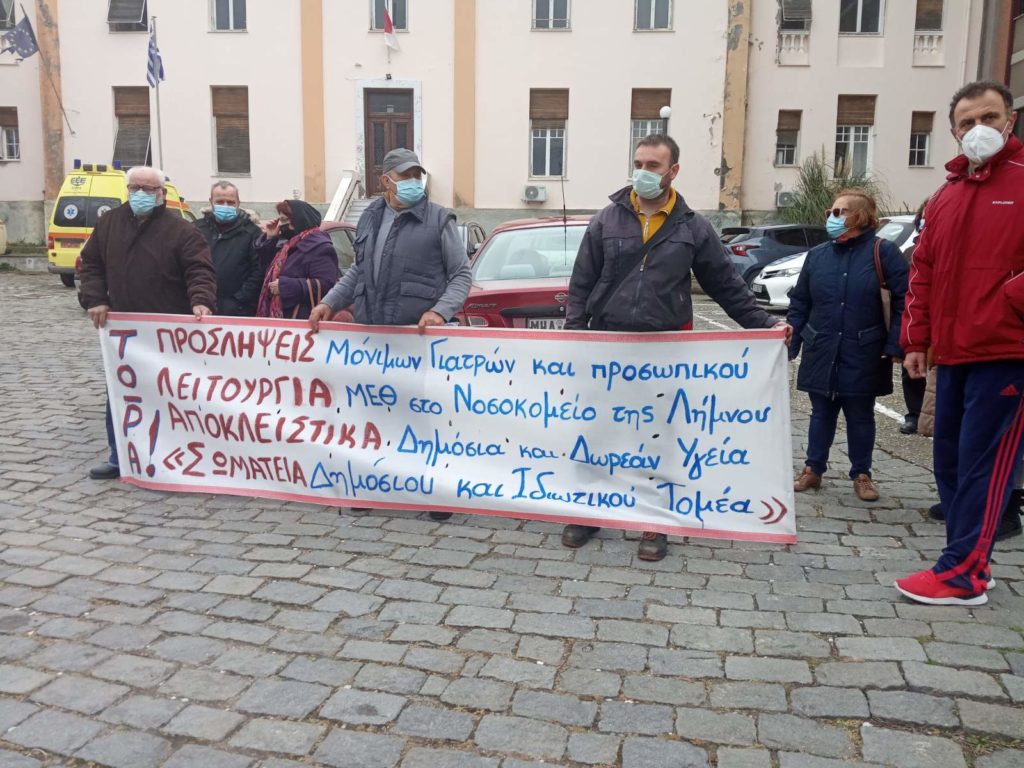 ΤΩΡΑ!
ΠΡΟΣΛΗΨΕΙΣ Μόνιμων Γιατρών και προσωπικού
ΛΕΙΤΟΥΡΓΙΑ ΜΕΘ στο Νοσοκομείο της Λήμνου
ΑΠΟΚΛΕΙΣΤΙΚΑ Δημόσια και Δωρεάν Υγεία
«ΣΩΜΑΤΕΙΑ Δημόσιου και Ιδιωτικού Τομέα»
EXPLORER